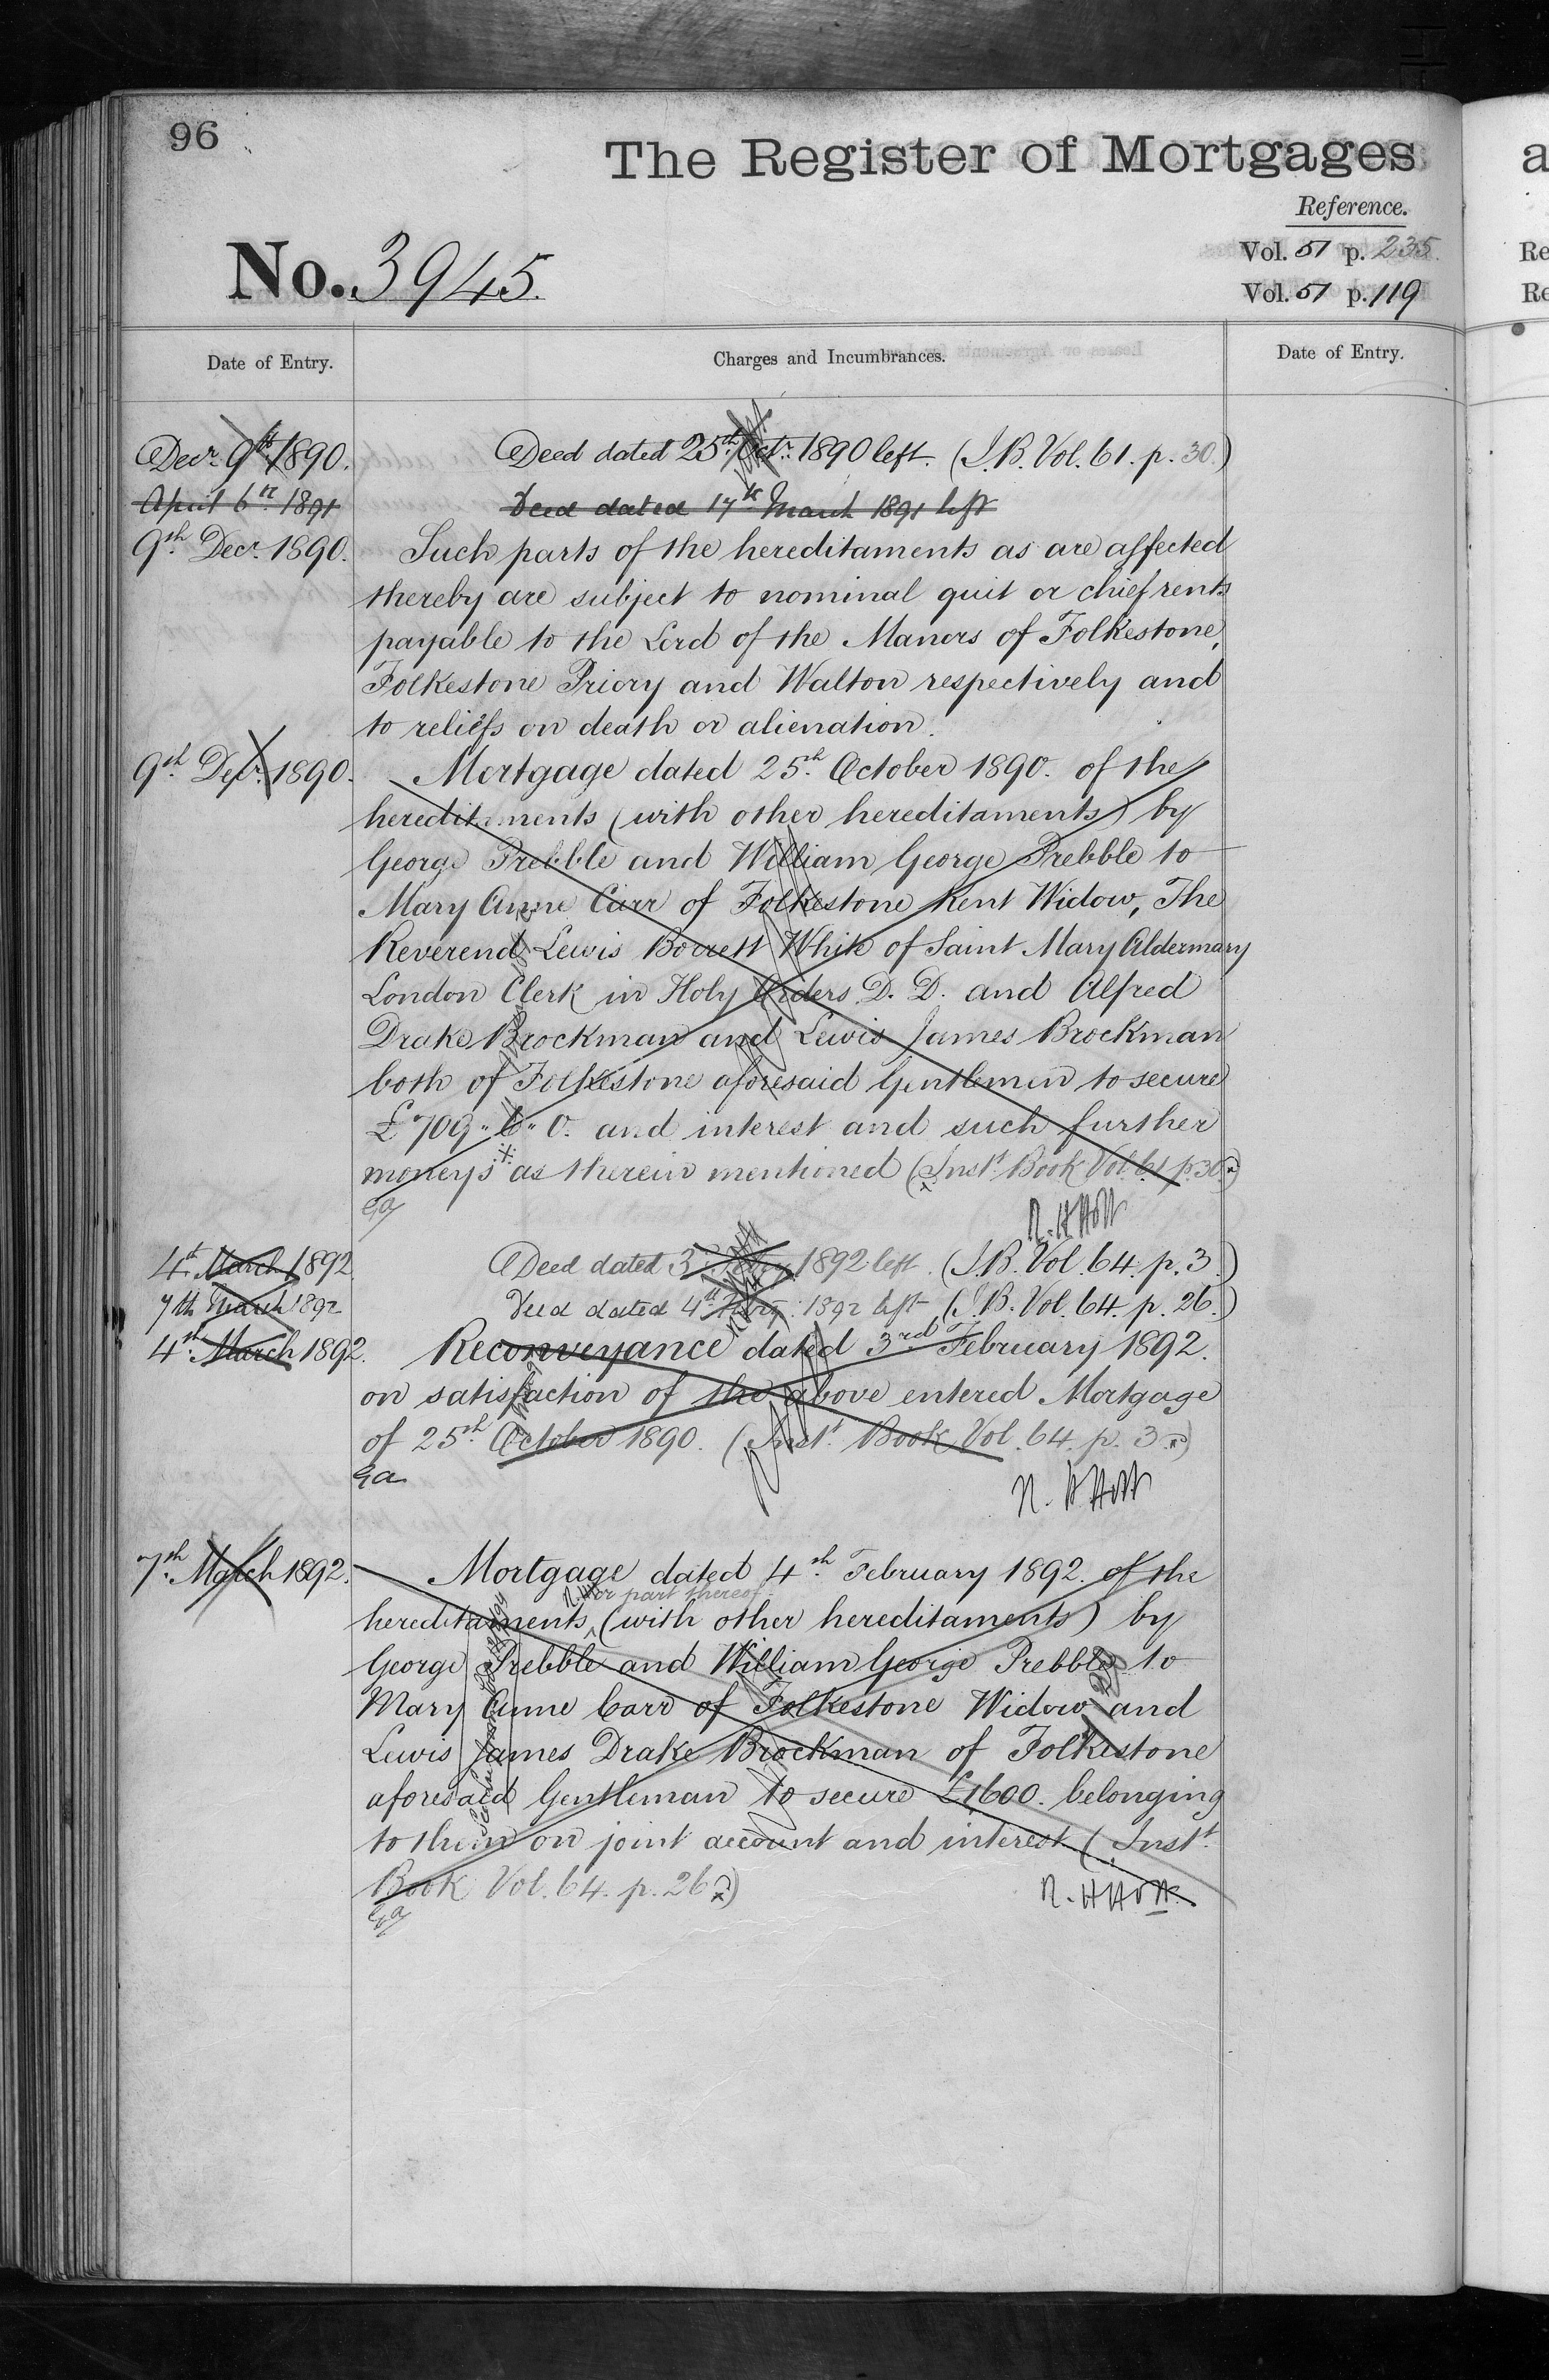 96
The Register of Mortgages
Reference.
Vol. 51 p. 235.
Vol. 51 p. 119
No. 3945.
Date of Entry.
Charges and Incumbrances.
Date of Entry.
Decr. 9th 1890. Deed dated 25th Octr. 1890 left. (I.B. Vol. 61. p. 30.)
April 6th 1891 Deed dated 17th March 1891 left
9th Decr. 1890. Such parts of the hereditaments as are affected
thereby are subject to nominal quit or chief rents
payable to the Lord of the Manors of Folkestone,
Folkestone Priory and Walton respectively and
to reliefs on death or alienation.
9th Decr. 1890. Mortgage dated 25th October 1890. of the
hereditaments (with other hereditaments) by
George Prebble and William George Prebble to
Mary Anne Carr of Folkestone Kent Widow, The
Reverend Lewis Borrett White of Saint Mary Aldermary
London Clerk in Holy Orders D. D. and Alfred
Drake Brockman and Lewis James Brockman
both of Folkestone aforesaid Gentlemen to secure
£709 " 6 " 0. and interest and such further
moneys as therein mentioned (Inst. Book Vol. 61 p. 30.)
4th March 1892 Deed dated 3rd Febry. 1892 left. (I.B. Vol. 64. p. 3.)
7th March 1892 Deed dated 4th Febry. 1892 left (I.B. Vol. 64. p. 26.)
4th March 1892. Reconveyance dated 3rd February 1892.
on satisfaction of the above entered Mortgage
of 25th October 1890. (Inst. Book Vol. 64. p. 3.)
7th March 1892. Mortgage dated 4th February 1892. of the
or part thereof
hereditaments (with other hereditaments) by
George Prebble and William George Prebble to
Mary Anne Carr of Folkestone Widow and
Lewis James Drake Brockman of Folkestone
aforesaid Gentleman to secure £1600. belonging
to them on joint account and interest (Inst.
Book Vol. 64. p. 26.)
a
Re
Re